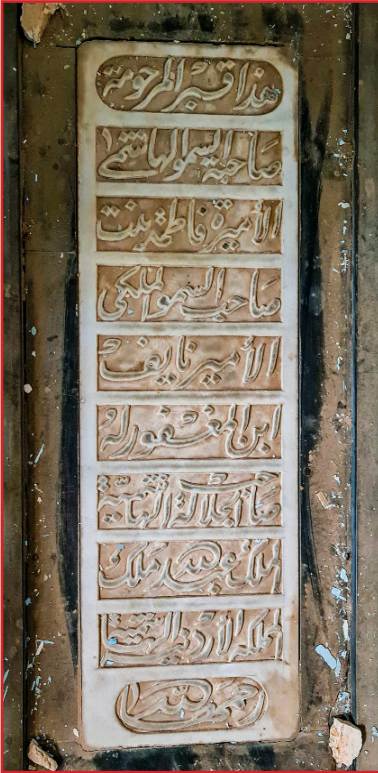 هذا قبر المرحومة
صاحبة السمو الهاشمي
الأميرة فاطمة بنت
صاحب السمو الملكي
الأمير نايف
ابن المغفور له
صاحب الجلالة الهاشمية
الملك عبدالله ملك
المملكة الأردنية الهاشمية
رحمهما الله